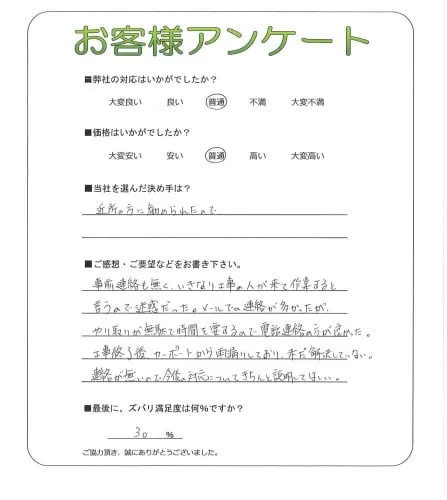 お客様アンケート
■弊社の対応はいかがでしたか？
大変良い 良い 普通 不満 大変不満
■価格はいかがでしたか？
大変安い 安い 普通 高い 大変高い
■当社を選んだ決め手は？
近所の方に勧められたので、
■ご感想・ご要望などをお書き下さい。
事前連絡も無く、いきなり工事の人が来て作業すると
言うので迷惑だった。メールでの連絡が多かったが、
やり取りが無駄で時間を要するので電話連絡の方が良かった。
工事終了後、カーポートから雨漏りしており、未だ解決していない。
連絡が無いので今後の対応についてきちんと説明してほしい。
■最後に、ズバリ満足度は何%ですか？
30 %
ご協力頂き、誠にありがとうございました。